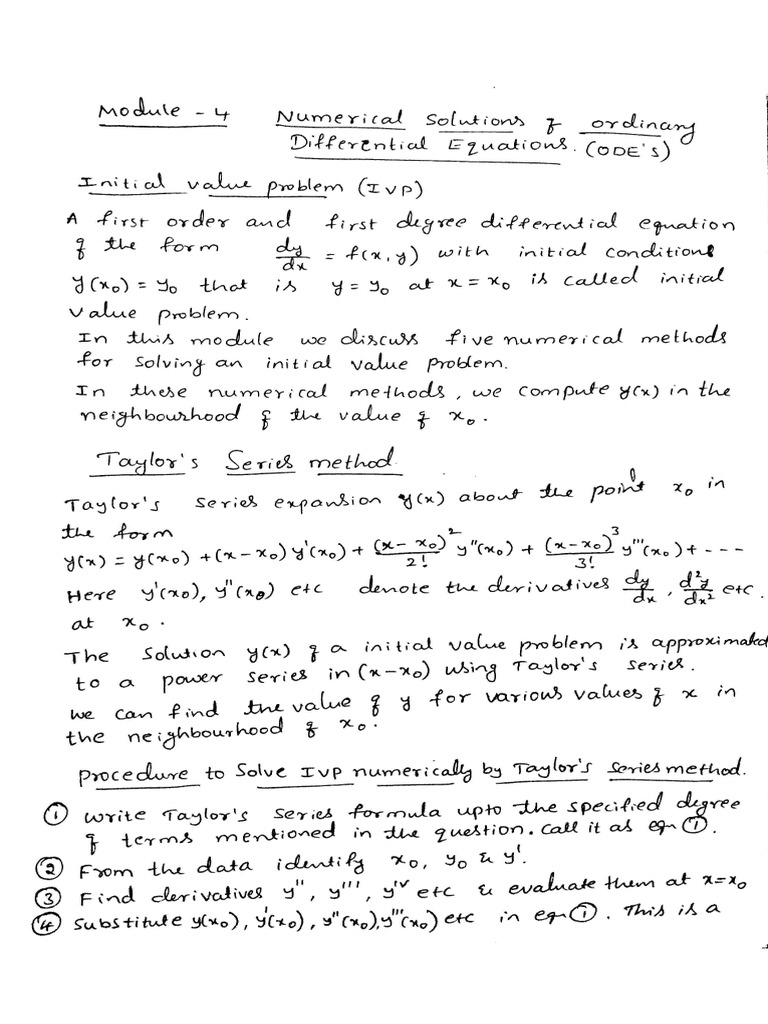 Module - 4 Numerical Solutions of ordinary
Differential Equations. (ODE's)
Initial value problem (IVP)
A first order and first degree differential equation
of the form dy/dx = f(x, y) with initial condition
y(x₀) = y₀ that is y = y₀ at x = x₀ is called initial
value problem.
In this module we discuss five numerical methods
for solving an initial value problem.
In these numerical methods, we compute y(x) in the
neighbourhood of the value of x₀.
Taylor's Series method.
Taylor's series expansion y(x) about the point x₀ in
the form
y(x) = y(x₀) + (x - x₀) y'(x₀) + (x - x₀)²/2! y''(x₀) + (x - x₀)³/3! y'''(x₀) + - - -
Here y'(x₀), y''(x₀) etc denote the derivatives dy/dx, d²y/dx² etc.
at x₀.
The Solution y(x) of a initial value problem is approximated
to a power series in (x - x₀) using Taylor's series.
we can find the value of y for various values of x in
the neighbourhood of x₀.
Procedure to Solve IVP numerically by Taylor's series method.
① Write Taylor's series formula upto the specified degree
of terms mentioned in the question. Call it as eqn ①.
② From the data identify x₀, y₀ & y'.
③ Find derivatives y'', y''', yⁱᵛ etc & evaluate them at x = x₀
④ Substitute y(x₀), y'(x₀), y''(x₀), y'''(x₀) etc in eqn ①. This is a